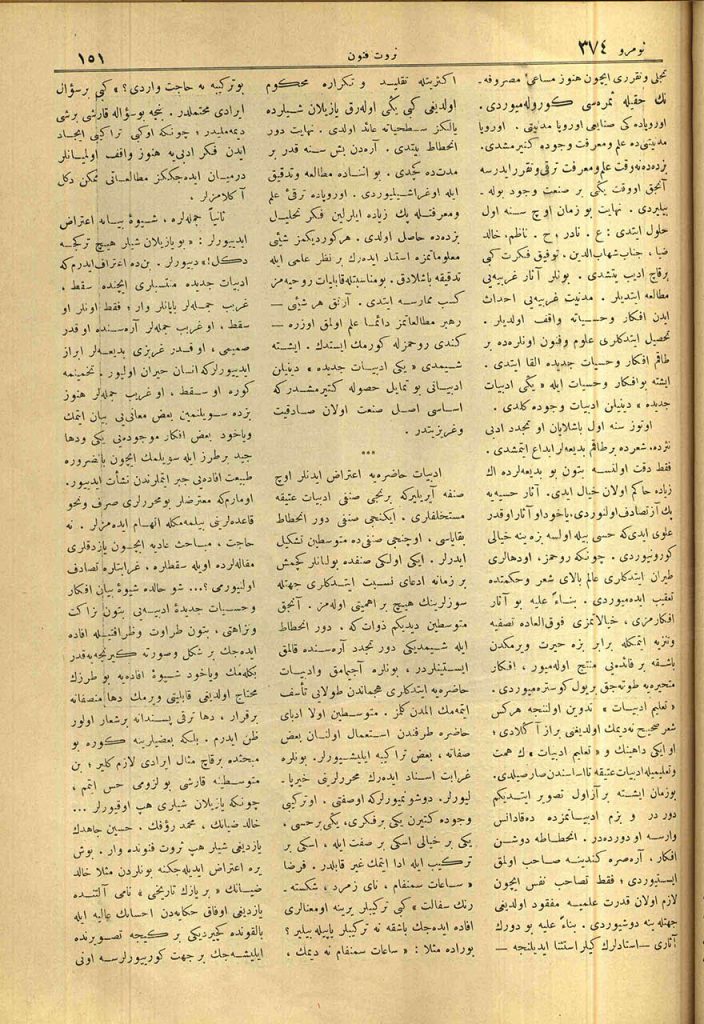 نومرو ٣٧٤
ثروت فنون
١٥١
تجلی و تقرری ایچون هنوز مساعئ مصروفه ـ
نك حقیله ثمره‌سی كورولمه‌یوردی .
اوروپاده كی صنایعی اوروپا مدنیتی . اوروپا
مدنیتی ده علم و معرفت وجوده كتیرمشدی.
بزده ده نه وقت علم و معرفت ترقی و تقرر ایدرسه
آنجق او وقت یكی بر صنعت وجود بوله ـ
بیلیردی . نهایت بو زمان اوچ سنه اول
حلول ایتدی : ع . نادر ، ح . ناظم، خالد
ضیا ، جناب شهاب‌الدین . توفیق فكرت كبی
برقاچ ادیب یتشدی . بونلر آثار غربیه‌یی
مطالعه ایتدیلر . مدنیت غربیه‌یی احداث
ایدن افكار و حسیاته واقف اولدیلر .
تحصیل ایتدكلری علوم و فنون اونلرده ده بر
طاقم افكار و حسیات جدیده القا ایتدی .
ایشته بو افكار و حسیات ایله « یكی ادبیات
جدیده » دینیلن ادبیات وجوده كلدی .
اوتوز سنه اول باشلایان او تجدد ادبی
نثرده، شعرده برطاقم بدیعه‌لر ابداع ایتمشدی.
فقط دقت اولنسه بتون بو بدیعه‌لرده اك
زیاده حاكم اولان خیال ایدی . آثار حسیه‌یه
پك آز تصادف اولنوردی، یاخود او آثار او قدر
علوی ایدی كه حسی بیله اولسه بزه ینه خیالی
كورونیوردی . چونكه روحمز، اودهالری
طیران ایتدكلری عالم بالای شعر و حكمتده
تعقیب ایده‌میوردی . بناءً علیه بو آثار
افكارمزی ، خیالاتمزی فوق‌العاده تصفیه
و تنزیه ایتمكله برابر بزه حیرت ویرمكدن
باشقه بر فائده‌یی منتج اوله‌میور ، افكار
متحیره‌یه طوته‌جق بر یول كوستره‌میوردی .
« تعلیم ادبیات » تدوین اولننجه هركس
شعر صحیح نه دیمك اولدیغنی براز آكلادی ؛
او ایكی داهینك و « تعلیم ادبیات » ك همت
و تعلیمیله ادبیات عتیقه تا اساسندن صارصیلدی.
بو زمان ایشته بر آز اول تصویر ایتدیكم
دور در و بزم ادبیاتمزده ده‌قادانس
وارسه او دورده‌در . انحطاطه دوشن
افكار ، آره‌صره كندینه صاحب اولمق
ایستیوردی ؛ فقط تصاحب نفس ایچون
لازم اولان قدرت علمیه مفقود اولدیغی
جهتله ینه دوشیوردی . بناءً علیه بو دورك
آثاری — استادلرك كیلر استثنا ایدیلنجه —
اكثریتله تقلید و تكراره محكوم
اولدیغی كبی یكی اوله‌رق یازیلان شیلرده
یالكز سطحیاته عائد اولدی . نهایت دور
انحطاط بیتدی . آره‌دن بش سنه قدر بر
مدت ده كچدی . بو اثناده مطالعه و تدقیق
ایله اوغراشیلیوردی . اوروپاده ترقئ علم
و معرفتله پك زیاده ایلرلین فكر تحلیل
بزده ده حاصل اولدی . هر كوردیكمز شیئی
معلوماتمزه استناد ایده‌رك بر نظر علمی ایله
تدقیقه باشلادق . بومناسبتله قابلیات روحیه‌مز
كسب ممارسه ایتدی . آرتق هر شیئی —
رهبر مطالعاتمز دائما علم اولمق اوزره —
كندی روحمزله كورمك ایستدك . ایشته
شیمدی « یكی ادبیات جدیده » دینیلن
ادبیاتی بو تمایل حصوله كتیرمشدر كه
اساسی اصل صنعت اولان صادقیت
و غریزیتدر .
***
ادبیات حاضره‌یه اعتراض ایدنلر اوچ
صنفه آیریلیركه برنجی صنفی ادبیات عتیقه
مستخلفلری . ایكنجی صنفی دور انحطاط
بقایاسی ، اوچنجی صنفی ده متوسطین تشكیل
ایدرلر . ایكی اولكی صنفده بولنانلر كچمش
بر زمانه ادعای نسبت ایتدكلری جهتله
سوزلرینك هیچ بر اهمیتی اوله‌مز . آنجق
متوسطین دیدیكم ذوات كه . دور انحطاط
ایله شیمدیكی دور تجدد آره‌سنده قالمق
ایستینلردر ، بونلره آجیمامق و ادبیات
حاضره‌یه ایتدكلری هجماندن طولایی تأسف
ایتمه‌مك المدن كلمز . متوسطین اولا ادبای
حاضره طرفندن استعمال اولنان بعض
صفاته ، بعض تراكیبه ایلیشیورلر. بونلره
غرابت اسناد ایده‌رك محررلرنی خیرپا ـ
لیورلر. دوشونمیورلركه اوصفتی ، اوتركیبی
وجوده كتیرن یكی بر فكری، یكی برحسی ،
یكی بر خیالی اسكی بر صفت ایله ، اسكی بر
تركیب ایله ادا ایتمك غیر قابلدر . فرضا
« ساعات سمنفام ، نای زمرد ، شكسته .
رنك سفالت » كبی تركیبلر یرینه اومعنالری
افاده ایده‌جك باشقه نه تركیبلر یاپیله بیلیر ؟
بوراده مثلا : « ساعات سمنفام نه دیمك ،
بو تركیبه نه حاجت واردی ؟ » كبی برسؤال
ایرادی محتملدر. بنجه بو سؤاله قارشی برشی
دیمه‌ملیدر ؛ چونكه اوكی تراكیبی ایجاد
ایدن فكر ادبی‌یه هنوز واقف اولمیانلر
درمیان ایده‌جككز مطالعاتی ممكن دكل
آكلامزلر .
ثانیاً جمله‌لره ، شیوهٔ بیانه اعتراض
ایدییورلر : « بو یازیلان شیلر هیچ تركجه
دكل!» دییورلر . بن ده اعتراف ایدرم كه
ادبیات جدیده منتسبلری ایچنده سقط ،
غریب جمله‌لر یاپانلر وار ؛ فقط اونلر او
سقط ، او غریب جمله‌لر آره‌سنده او قدر
صمیمی ، او قدر غریزی بدیعه‌لر ابراز
ایدییورلركه انسان حیران اولیور . تخمینمه
كوره او سقط ، او غریب جمله‌لر هنوز
بزده سویلنمین بعض معانی‌یی بیان ایتمك
ویاخود بعض افكار موجوده‌یی یكی و دها
جید برطرز ایله سویلمك ایچون بالضروره
طبیعت افاده‌یی جبر ایتملرندن نشأت ایدییور.
اومارم كه معترضلر بو محررلری صرف و نحو
قاعده‌لرینی بیلمه‌مكله اتهام ایده‌مزلر . نه
حاجت ، مباحث عادیه ایچون یازدقلری
مقاله‌لرده اویله سقطلره ، غرابتلره تصادف
اولنیورمی ؟... شو حالده شیوهٔ بیان افكار
و حسیات جدیدهٔ ادبیه‌یی بتون نزاكت
و نزاهتی ، بتون طراوت و ظرافتیله افاده
ایده‌جك بر شكل و صورته كیرنجه‌یه قدر
بكله‌مك ویاخود شیوهٔ افاده‌یه بو طرزك
محتاج اولدیغی قابلیتی ویرمك دها منصفانه
برقرار ، دها ترقی پسندانه برشعار اولور
ظن ایدرم . بلكه بعضیلرینه كوره بو
مبحثده برقاچ مثال ایرادی لازم كلیر ؛ بن
متوسطینه قارشی بو لزومی حس ایتمم ،
چونكه یازیلان شیلری هپ اوقیورلر ...
خالد ضیانك ، محمد رؤفك . حسین جاهدك
یازدیغی شیلر هپ ثروت فنونده وار . بوش
یره اعتراض ایدیله‌جكنه بونلردن مثلا خالد
ضیانك « بر یازك تاریخی » نامی آلتنده
یازدیغی اوفاق حكایه‌دن احسانك عالیه ایله
بالقونده كچیردیكی بر كیجه تصویرنده
ایلیشه‌جك بر جهت كوریورلرسه اونی